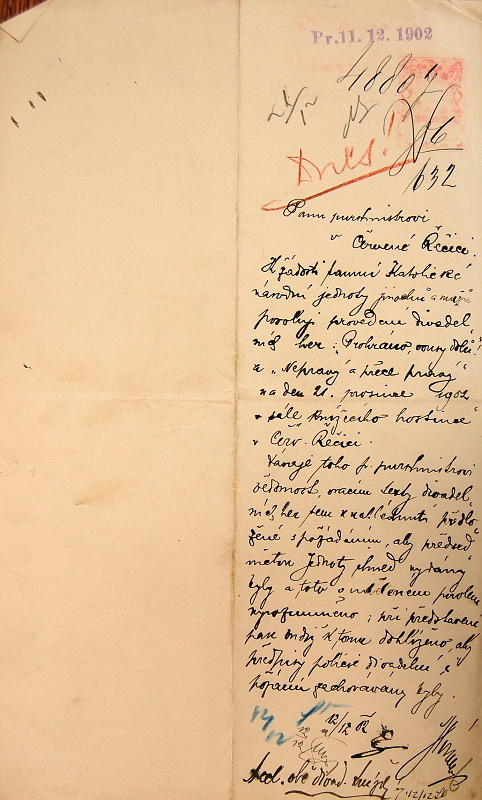 Pr. 11. 12. 1902
48807
Dnes!
16
632
Panu purkmistrovi
v Červené Řečici.
K žádosti tamní Katolické
národní jednoty jinochů a mužů
povoluji provedení divadel
ních her: „Prohráno, vousy dolů!"
a „Nepravý a přece pravý"
na den 21. prosince 1902
v sále knížecího hostince
v Červ. Řečici.
toho p. purkmistrovi
vědomost, vracím texty divadel
ních her sem k nahlédnutí předlo
žené s požádáním, aby předsed
nictvu Jednoty ihned vydány
byly a toto o uděleném povolení
vyrozuměno; při představení
pak budiž k tomu dohlíženo, aby
předpisy policie divadelní i
požární zachovávány byly.
12/12 02
12/12